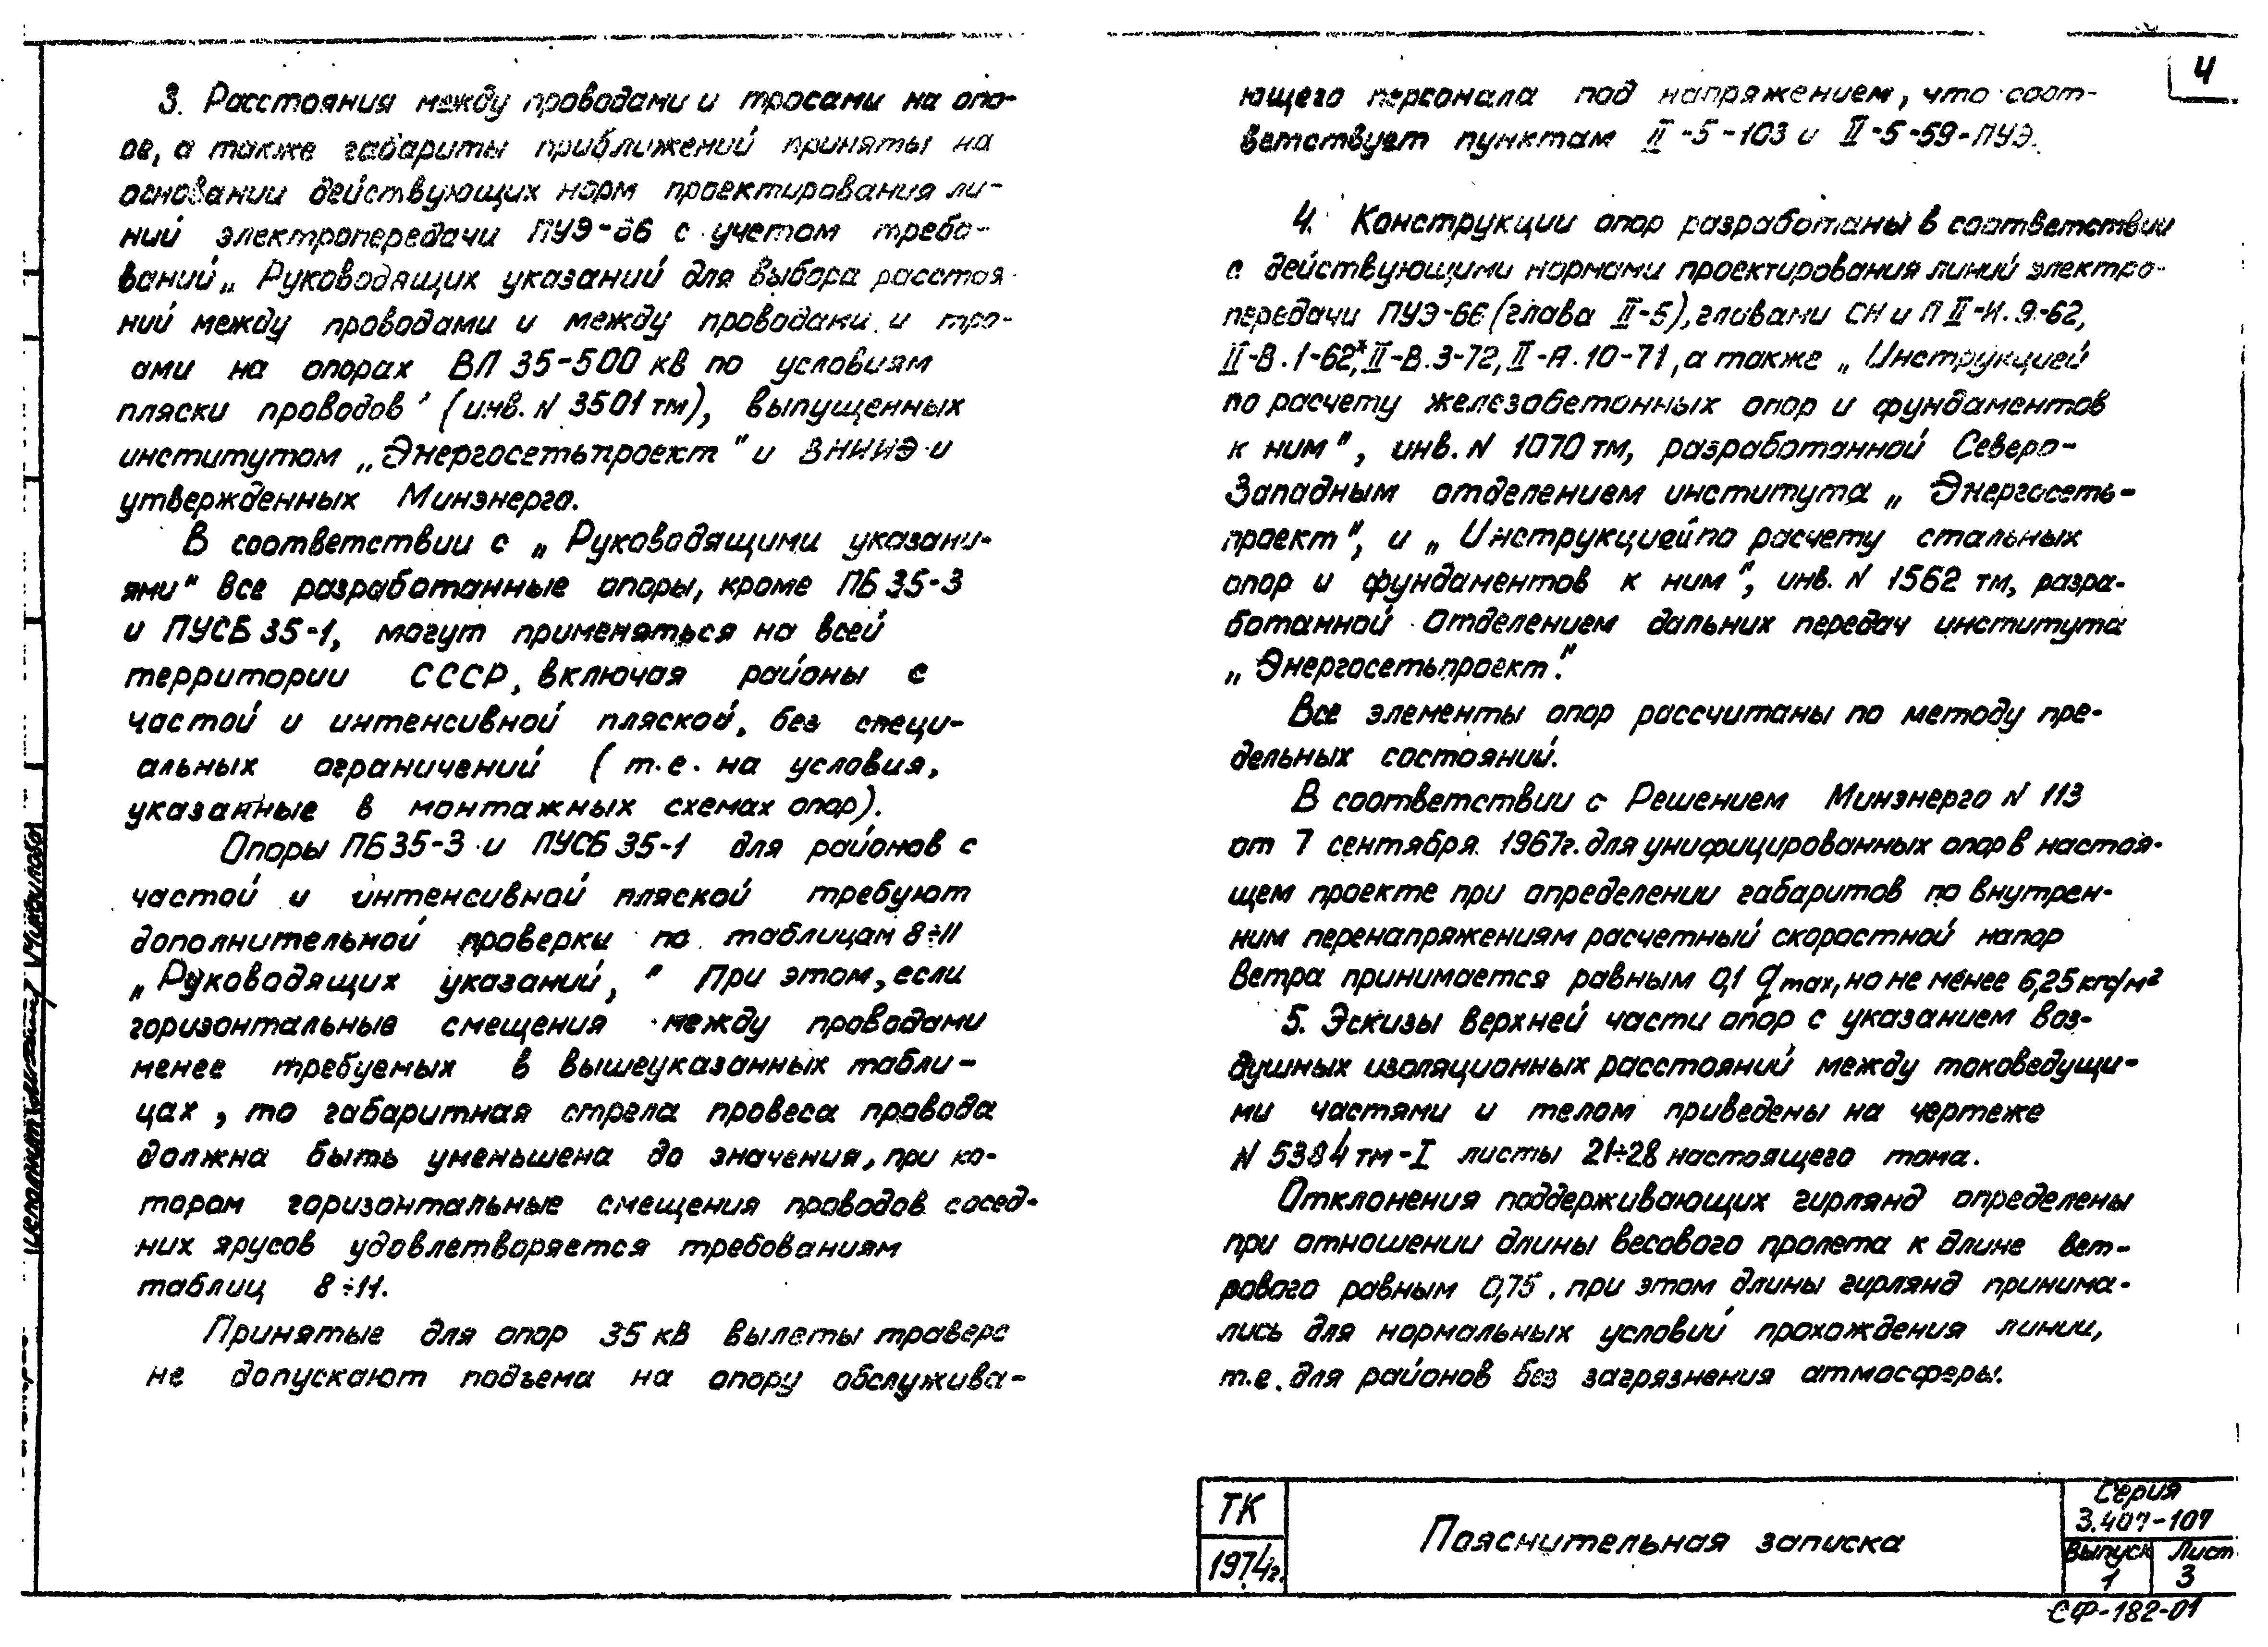 3. Расстояния между проводами и тросами на опо-
ре, а также габариты приближений приняты на
основании действующих норм проектирования ли-
ний электропередачи ПУЭ-66 с учетом требо-
ваний „Руководящих указаний для выбора расстоя-
ний между проводами и между проводами и тро-
ами на опорах ВЛ 35-500 кв по условиям
пляски проводов" (инв. N 3501 тм), выпущенных
институтом „Энергосетьпроект" и ВНИИЭ и
утвержденных Минэнерго.
В соответствии с „Руководящими указани-
ями" все разработанные опоры, кроме ПБ 35-3
и ПУСБ 35-1, могут применяться на всей
территории СССР, включая районы с
частой и интенсивной пляской, без специ-
альных ограничений (т.е. на условия,
указанные в монтажных схемах опор).
Опоры ПБ35-3 и ПУСБ 35-1 для районов с
частой и интенсивной пляской требуют
дополнительной проверки по таблицам 8÷11
„Руководящих указаний," При этом, если
горизонтальные смещения между проводами
менее требуемых в вышеуказанных табли-
цах, то габаритная стрела провеса провода
должна быть уменьшена до значения, при ко-
тором горизонтальные смещения проводов сосед-
них ярусов удовлетворяется требованиям
таблиц 8÷11.
Принятые для опор 35 кв вылеты траверс
не допускают подъема на опору обслужива-
4
ющего персонала под напряжением, что соот-
ветствует пунктам II-5-103 и II-5-59-ПУЭ.
4. Конструкции опор разработаны в соответствии
с действующими нормами проектирования линий электро-
передачи ПУЭ-66 (глава II-5), главами СН и П II-И.9-62,
II-В.1-62*, II-В.3-72, II-А.10-71, а также „Инструкцией
по расчету железобетонных опор и фундаментов
к ним", инв. N 1070 тм, разработанной Северо-
Западным отделением института „Энергосеть-
проект", и „Инструкцией по расчету стальных
опор и фундаментов к ним", инв. N 1562 тм, разра-
ботанной Отделением дальних передач института
„Энергосетьпроект."
Все элементы опор рассчитаны по методу пре-
дельных состояний.
В соответствии с Решением Минэнерго N 113
от 7 сентября 1967г. для унифицированных опор в настоя-
щем проекте при определении габаритов по внутрен-
ним перенапряжениям расчетный скоростной напор
ветра принимается равным 0,1 q max, но не менее 6,25 кгс/м²
5. Эскизы верхней части опор с указанием воз-
душных изоляционных расстояний между токоведущи-
ми частями и телом приведены на чертеже
N 5384 тм-I листы 21÷28 настоящего тома.
Отклонения поддерживающих гирлянд определены
при отношении длины весового пролета к длине вет-
рового равным 0,75. при этом длины гирлянд принима-
лись для нормальных условий прохождения линии,
т.е. для районов без загрязнения атмосферы.
ТК
1974г.
Пояснительная записка
Серия
3.407-107
Выпуск Лист
1 3
СФ-182-01